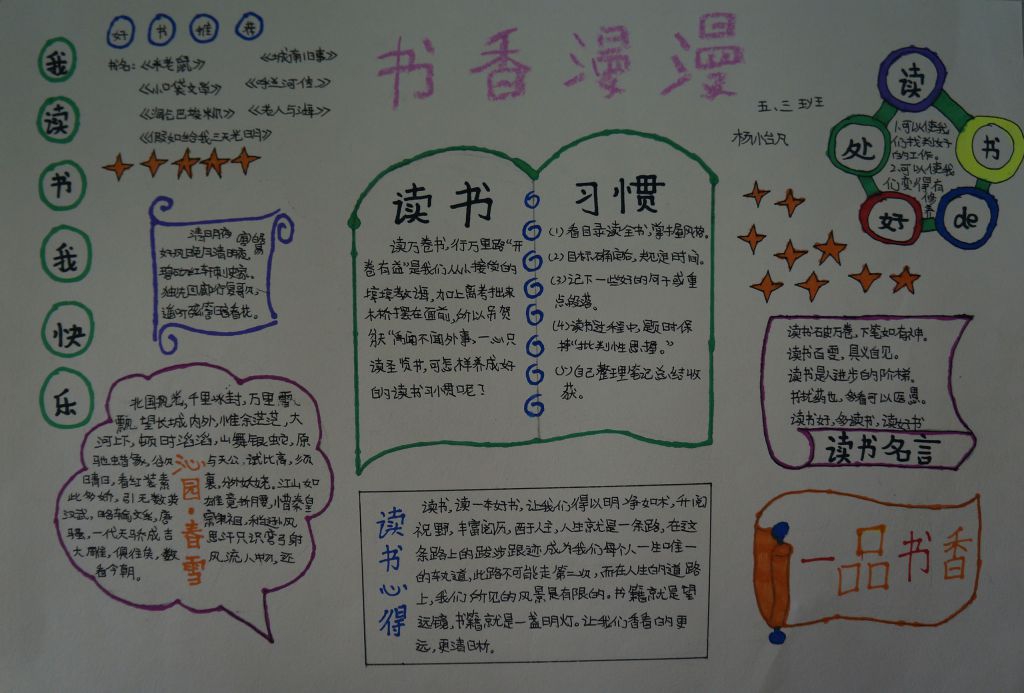 书香漫漫
五、三班
杨小台凡
好书推荐
书名：《米老鼠》
《城南旧事》
《小口袋文学》
《呼兰河传》
《海它巴拉机》
《老人与海》
《假如给我三天光明》
我读书我快乐
清明夜
白居易
好风胧月清明夜，
碧砌红轩刺史家。
独绕回廊行复歇，
遥听弦管暗看花。
北国风光，千里冰封，万里雪
飘，望长城内外，惟余茫茫，大
河上下，顿时滔滔，山舞银蛇，原
驰蜡象，欲与天公，试比高，须
晴日，看红装素裹，分外妖娆。江山如
此多娇，引无数英雄竞折腰，惜秦皇
汉武，略输文采，唐宗宋祖，稍逊风
骚，一代天骄，成吉思汗只识弯弓射
大雕，俱往矣，数风流人物，还
看今朝。
沁园·春雪
读书
读万卷书，行万里路“开
卷有益”是我们从小接受的
谆谆教诲，加上高考独木
木桥摆在面前，所以吊贺
能“两闻不闻外事，一心只
读圣贤书，可怎样养成好
的读书习惯呢？
习惯
(1)看目录读全书，掌握风格。
(2)目标确定，规定时间。
(3)记下一些好的句子或重
点段落。
(4)读书过程中，题时保
持“批判性思想。”
(5)自己整理笔记总结收
获。
读书心得
读书，读一本好书，让我们得以明净如水，开阔
视野，丰富阅历，西于人生，人生就是一条路，在这
条路上的跋涉跟迹成为我们每个人一生唯一
的轨道，此路不可能走第二次，而在人生的道路
上，我们所见的风景是有限的。书籍就是望
远镜，书籍就是一盏明灯。让我们看看的更
远，更清日析。
读书de好处
1.可以使我
们找到好
的工作。
2.可以使我
们变得有
修养
读书破万卷，下笔如有神。
读书百变，具义自见。
读书是人进步的阶梯。
书犹药也，多看可以医愚。
读书好，多读书，读好书
读书名言
一品书香